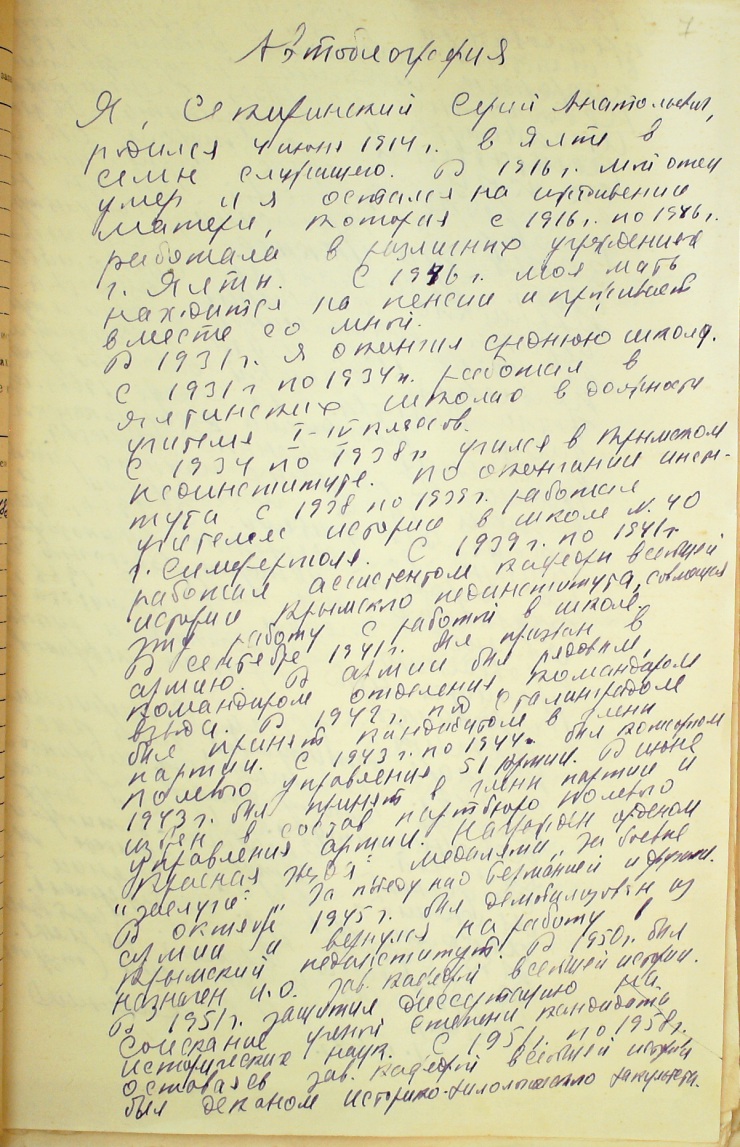 7
Автобиография
Я, Секиринский Сергей Анатольевич,
родился 4 июня 1914 г. в Ялте в
семье служащего. В 1916 г. мой отец
умер и я остался на иждивении
матери, которая с 1916 г. по 1946 г.
работала в различных учреждениях
г. Ялты. С 1946 г. моя мать
находится на пенсии и проживает
вместе со мной.
В 1931 г. я окончил среднюю школу.
С 1931 г. по 1934 г. работал в
ялтинских школах в должности
учителя I-IV классов.
С 1934 по 1938 г. учился в Крымском
пединституте. По окончании инсти-
тута с 1938 по 1939 г. работал
учителем истории в школе № 40
г. Симферополя. С 1939 г. по 1941 г.
работал ассистентом кафедры всеобщей
истории Крымского пединститута, совмещая
эту работу с работой в школе.
В сентябре 1941 г. был призван в
армию. В армии был рядовым,
командиром отделения, командиром
взвода. В 1942 г. под Сталинградом
был принят кандидатом в члены
партии. С 1943 г. по 1944 г. был
полевого управления 51 армии. В июне
1943 г. был принят в члены партии и
избран в состав партбюро полевого
управления армии. Награжден орденом
"Красная звезда" медалями "За боевые
заслуги", "За победу над Германией" и другими.
В октябре 1945 г. был демобилизован из
армии и вернулся на работу в
Крымский пединститут. В 1950 г. был
назначен и.о. зав. кафедрой всеобщей истории.
В 1951 г. защитил диссертацию на
соискание ученой степени кандидата
исторических наук. С 1951 г. по 1958 г.
оставаясь зав. кафедрой всеобщей истории
был деканом историко-филологического факультета.